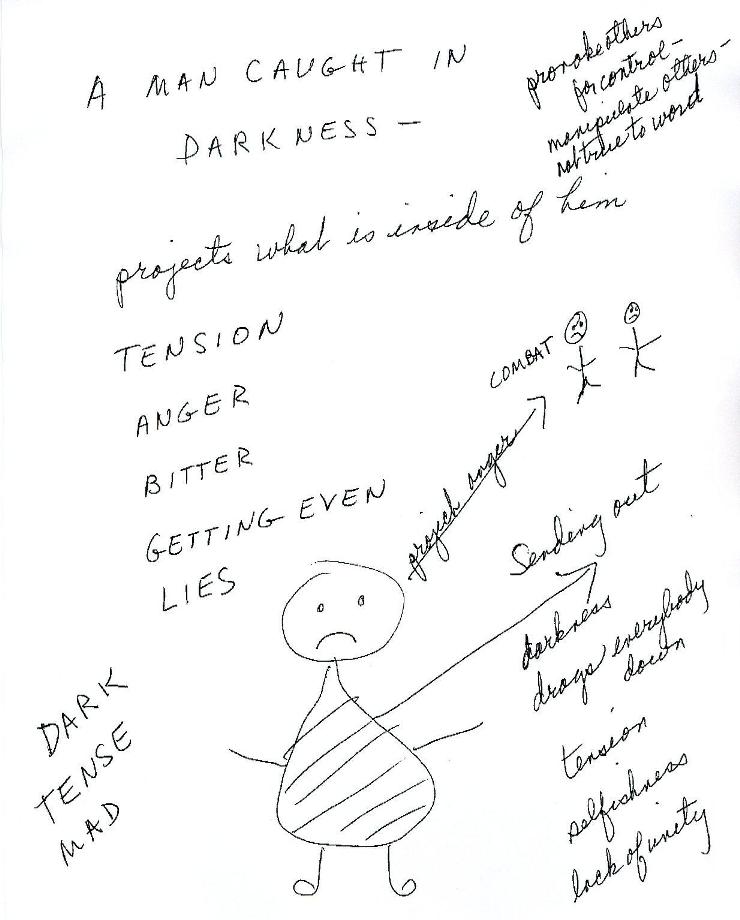 A MAN CAUGHT IN
DARKNESS –
provoke others
for control –
manipulate others –
not true to word
projects what is inside of him
TENSION
ANGER
BITTER
GETTING EVEN
LIES
COMBAT
project anger
Sending out
darkness
drags everybody
down
tension
selfishness
lack of unity
DARK
TENSE
MAD